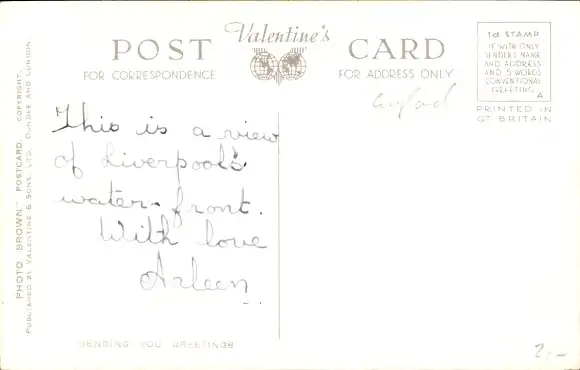 Valentine's
POST CARD
FOR CORRESPONDENCE
FOR ADDRESS ONLY
1d STAMP
IF WITH ONLY
SENDER'S NAME
AND ADDRESS
AND 5 WORDS
CONVENTIONAL
GREETING
A
PRINTED IN
GT BRITAIN
England
This is a view
of Liverpool's
water-front.
With love
Arleen
"PHOTO BROWN" POSTCARD. COPYRIGHT.
PUBLISHED BY VALENTINE & SONS, LTD., DUNDEE AND LONDON
SENDING YOU GREETINGS
2,-